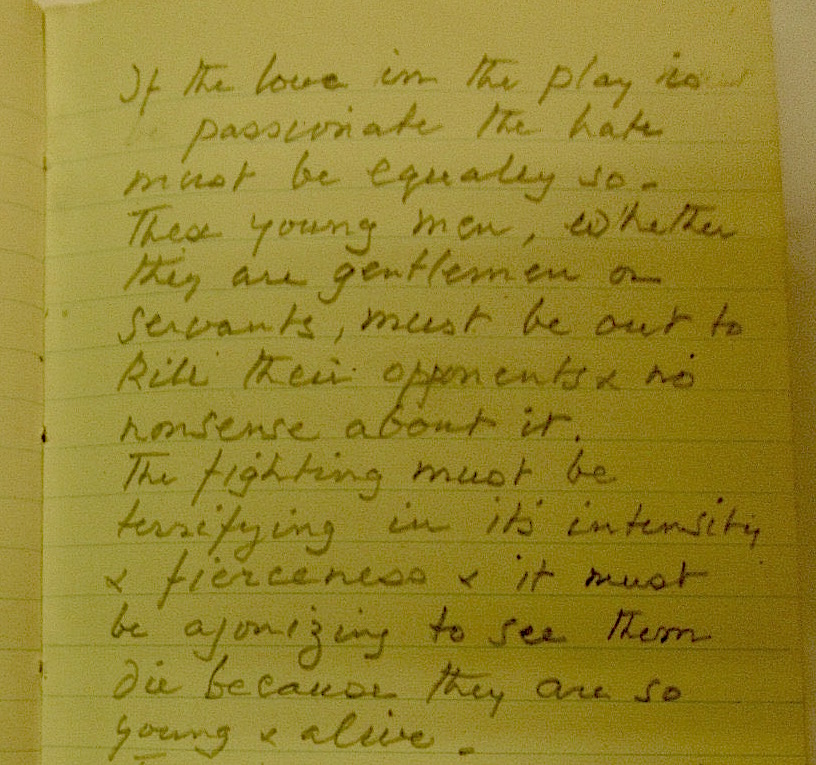 If the love in the play is
passionate the hate
must be equally so.
These young men, whether
they are gentlemen or
servants, must be out to
kill their opponents & no
nonsense about it.
The fighting must be
terrifying in its intensity
& fierceness & it must
be agonizing to see them
die because they are so
young & alive.